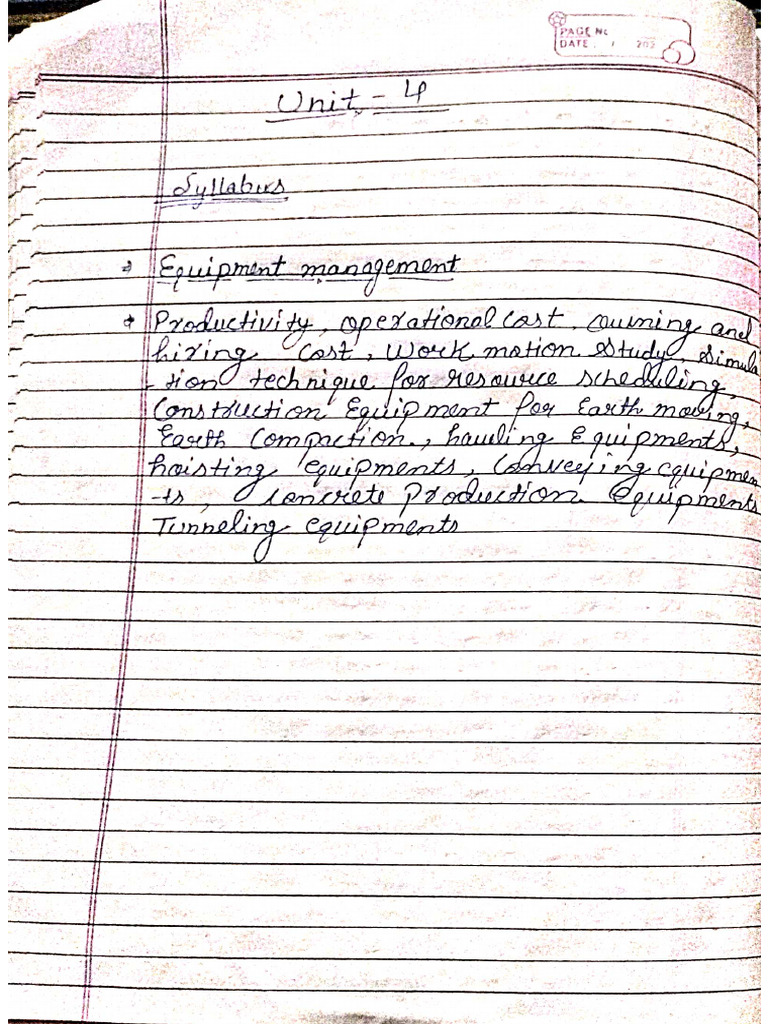 PAGE No
DATE / 202
Unit - 4
Syllabus
⇒ Equipment management
→ Productivity, operational cost, owning and
hiring cost, work motion study, simula
-tion technique for resource scheduling,
Construction Equipment for Earth moving,
Earth Compaction, hauling Equipments,
hoisting equipments, Conveying equipmen
-ts, Concrete Production Equipments
Tunneling equipments